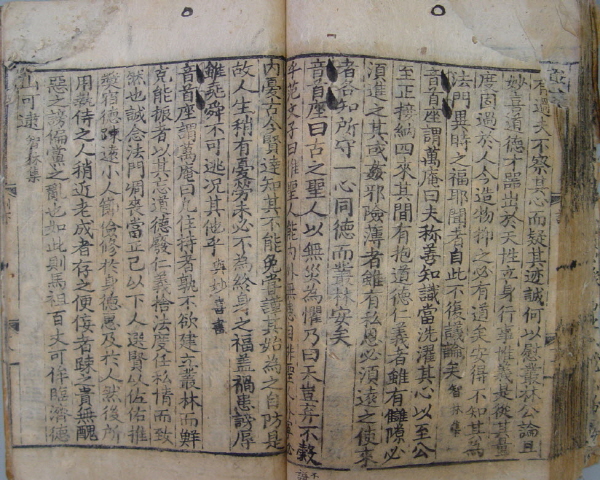 有過夫不察其心而疑其迹誠何以慰叢林公論且
妙喜道德才器出於天性立身行事惟義是從其量
度固過於人今造物抑之必有道矣安得不知其為
法門異時之福耶聞者自此不復議論矣 智林集
音首座謂萬庵曰夫稱善知識當洗濯其心以至公
至正接納四來其間有抱道德仁義者雖有讎隙必
須進之其或姦邪險薄者雖有私恩必須遠之使來
者各知所守一心同德而叢林安矣
音首座曰古之聖人以無災為懼乃曰天豈弃不穀
乎范文子曰惟聖人能內外無患自非聖人外寧必
內憂古今賢達知其不能免嘗謹其始為之自防是
故人生稍有憂勞未必不為終身之福蓋禍患謗辱
雖堯舜不可逃況其他乎 與妙喜書
音首座謂萬庵曰凡住持者孰不欲建立叢林而鮮
克能振者以其忘道德廢仁義捨法度任私情而致
然也誠念法門凋喪當正己以下人選賢以佐佑推
奬宿德踈遠小人節儉修於身德惠及於人然後所
用執侍之人稍近老成者存之便佞者踈之貴無醜
惡之謗偏黨之亂也如此則馬祖百丈可侔臨濟德
山可逮 智林集